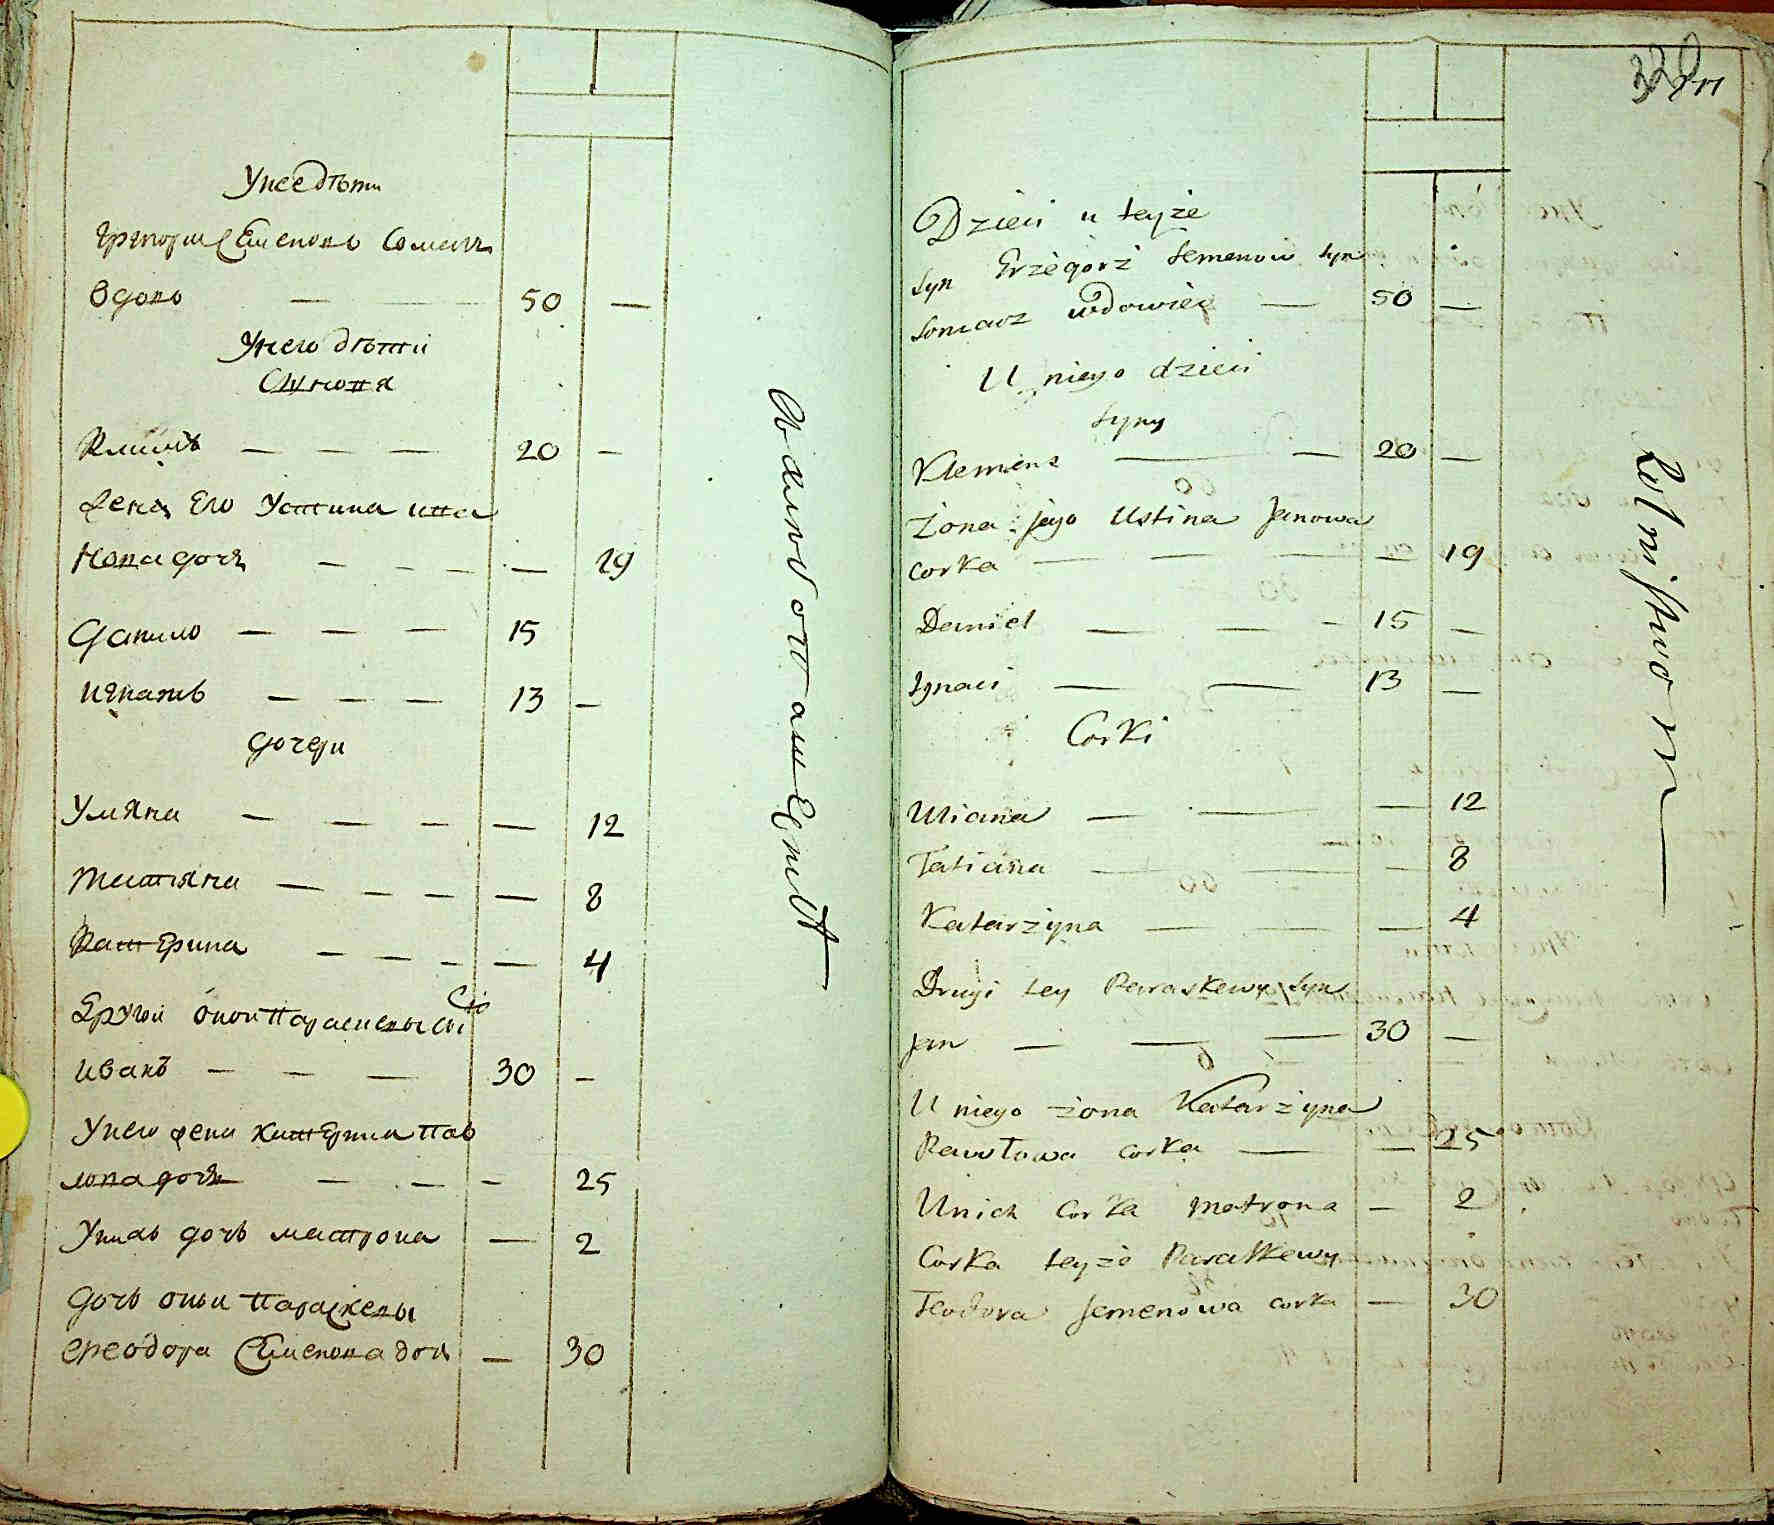 Унее дѣти
Григорий Семеновъ Сомаръ
вдовъ — 50 —
Унего дѣти
Сыновя
Климъ — — — 20 —
Жена Его Устина Ива
нова дочь — — — — 19
Данило — — — 15
Игнатъ — — — 13 —
дочери
Уляна — — — — 12
Татяна — — — — — 8
Катерина — — — — 4
Другій оной Параскевы Сынъ
Иванъ — — — 30 —
Унего жена Катерина Пав
лова дочь — — — 25
Унихъ дочь Матрона — 2
Дочь оный Параскевы
Ѳеодора Семенова дочь — 30
земледѣлствомъ
Dzieci u teyże
Syn Grzegorz Semenow syn
Somarz wdowiec — 50 —
U niego dzieci
Syny
Klemens — — 20 —
Żona jego Ustina Janowa
corka — — — — 19
Daniel — — — 15 —
Ignaci — — 13 —
Corki
Uliana — — — 12
Tatiana — — — 8
Katarzyna — — — 4
Drugi tey Paraskewy Syn
Jan — — — 30 —
U niego żona Katarzyna
Pawłowa corka — — 25
U nich Corka Matrona — 2
Corka teyże Paraskewy
Teodora Semenowa corka — 30
Rolnistwom